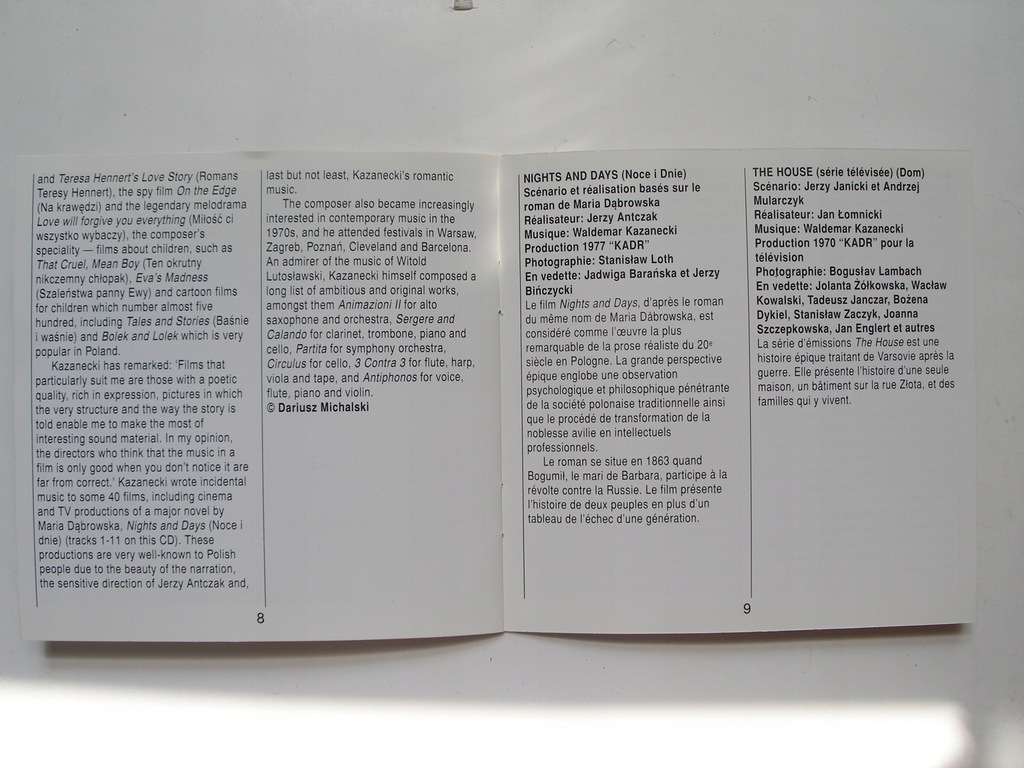 and Teresa Hennert's Love Story (Romans
Teresy Hennert), the spy film On the Edge
(Na krawędzi) and the legendary melodrama
Love will forgive you everything (Miłość ci
wszystko wybaczy), the composer's
speciality — films about children, such as
That Cruel, Mean Boy (Ten okrutny
nikczemny chłopak), Eva's Madness
(Szaleństwa panny Ewy) and cartoon films
for children which number almost five
hundred, including Tales and Stories (Baśnie
i waśnie) and Bolek and Lolek which is very
popular in Poland.
Kazanecki has remarked: 'Films that
particularly suit me are those with a poetic
quality, rich in expression, pictures in which
the very structure and the way the story is
told enable me to make the most of
interesting sound material. In my opinion,
the directors who think that the music in a
film is only good when you don't notice it are
far from correct.' Kazanecki wrote incidental
music to some 40 films, including cinema
and TV productions of a major novel by
Maria Dąbrowska, Nights and Days (Noce i
dnie) (tracks 1-11 on this CD). These
productions are very well-known to Polish
people due to the beauty of the narration,
the sensitive direction of Jerzy Antczak and,
last but not least, Kazanecki's romantic
music.
The composer also became increasingly
interested in contemporary music in the
1970s, and he attended festivals in Warsaw,
Zagreb, Poznań, Cleveland and Barcelona.
An admirer of the music of Witold
Lutosławski, Kazanecki himself composed a
long list of ambitious and original works,
amongst them Animazioni II for alto
saxophone and orchestra, Sergere and
Calando for clarinet, trombone, piano and
cello, Partita for symphony orchestra,
Circulus for cello, 3 Contra 3 for flute, harp,
viola and tape, and Antiphonos for voice,
flute, piano and violin.
© Dariusz Michalski
8
NIGHTS AND DAYS (Noce i Dnie)
Scénario et réalisation basés sur le
roman de Maria Dąbrowska
Réalisateur: Jerzy Antczak
Musique: Waldemar Kazanecki
Production 1977 "KADR"
Photographie: Stanisław Loth
En vedette: Jadwiga Barańska et Jerzy
Bińczycki
Le film Nights and Days, d'après le roman
du même nom de Maria Dâbrowska, est
considéré comme l'œuvre la plus
remarquable de la prose réaliste du 20e
siècle en Pologne. La grande perspective
épique englobe une observation
psychologique et philosophique pénétrante
de la société polonaise traditionnelle ainsi
que le procédé de transformation de la
noblesse avilie en intellectuels
professionnels.
Le roman se situe en 1863 quand
Bogumił, le mari de Barbara, participe à la
révolte contre la Russie. Le film présente
l'histoire de deux peuples en plus d'un
tableau de l'échec d'une génération.
THE HOUSE (série télévisée) (Dom)
Scénario: Jerzy Janicki et Andrzej
Mularczyk
Réalisateur: Jan Łomnicki
Musique: Waldemar Kazanecki
Production 1970 "KADR" pour la
télévision
Photographie: Bogusław Lambach
En vedette: Jolanta Żółkowska, Wacław
Kowalski, Tadeusz Janczar, Bożena
Dykiel, Stanisław Zaczyk, Joanna
Szczepkowska, Jan Englert et autres
La série d'émissions The House est une
histoire épique traitant de Varsovie après la
guerre. Elle présente l'histoire d'une seule
maison, un bâtiment sur la rue Złota, et des
familles qui y vivent.
9